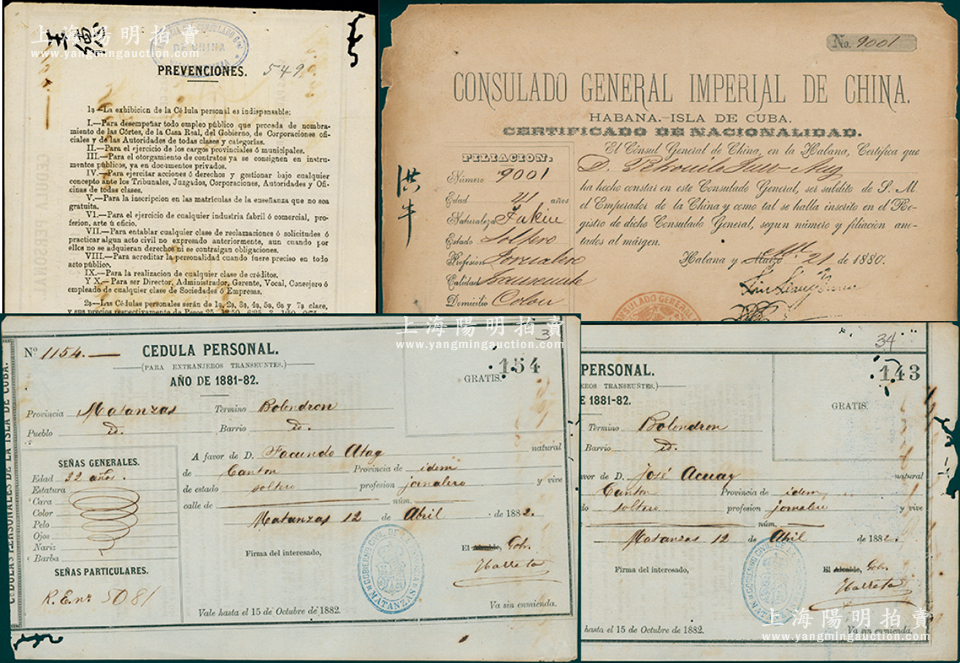 上海陽明拍賣
www.yangmingauction.com
PREVENCIONES. 549
1a—La exhibicion de la Cédula personal es indispensable:
I.—Para desempeñar todo empleo público que proceda de nombramiento
de las Córtes, de la Casa Real, del Gobierno, de Corporaciones oficiales
y de las Autoridades de todas clases y categorías.
II.—Para el ejercicio de los cargos provinciales ó municipales.
III.—Para el otorgamiento de contratos ya se consignen en instrumentos
públicos, ya en documentos privados.
IV.—Para ejercitar acciones ó derechos y gestionar bajo cualquier
concepto ante los Tribunales, Juzgados, Corporaciones, Autoridades y Oficinas
de todas clases.
V.—Para la inscripcion en las matrículas de la enseñanza que no sea
gratuita.
VI.—Para el ejercicio de cualquier industria fabril ó comercial, profesion,
arte ú oficio.
VII.—Para entablar cualquier clase de reclamaciones ó solicitudes ó
practicar algun acto civil no expresado anteriormente, aun cuando por
ellos no se adquieran derechos ni se contraigan obligaciones.
VIII.—Para acreditar la personalidad cuando fuere preciso en todo
acto público.
IX.—Para la realizacion de cualquier clase de créditos.
Y X.—Para ser Director, Administrador, Gerente, Vocal, Consejero ó
empleado de cualquier clase de Sociedades ó Empresa.
2a—Las Cédulas personales serán de 1a, 2a, 3a, 4a, 5a, 6a y 7a clase,
No. 9001
CONSULADO GENERAL IMPERIAL DE CHINA.
HABANA.—ISLA DE CUBA.
CERTIFICADO DE NACIONALIDAD.
El Cónsul General de China, en la Habana, Certifica que
D.
ha hecho constar en este Consulado General, ser súbdito de S. M.
el Emperador de la China y como tal se halla inscrito en el Registro
de dicho Consulado General, segun número y filiacion anotados
al márgen.
Habana y 21 de 1880.
FILIACION:
Número 9001
Edad 41 años
Naturaleza Fukien
Estado Soltero
Profesion Jornalero
Calidad Transeunte
Domicilio Colon
CONSULADO GENERAL
CEDULAS PERSONALES DE LA ISLA DE CUBA.
No 1154.
CEDULA PERSONAL.
(PARA EXTRANJEROS TRANSEUNTES)
AÑO DE 1881-82.
154
GRATIS.
Provincia Matanzas Termino Bolondron
Pueblo Id. Barrio Id.
SEÑAS GENERALES.
Edad 32 años.
Estatura
Cara
Color
Pelo
Ojos
Naris
Barba
SEÑAS PARTICULARES.
R. En. No 5081
A favor de D. Facundo Atag natural
de Canton Provincia de idem
de estado soltero profesion jornalero y vive
calle de núm.
Matanzas 12 de Abril de 1882.
Firma del interesado, El Alcalde, Gob.
GOBIERNO CIVIL DE LA PROVINCIA MATANZAS
Vale hasta el 15 de Octubre de 1882. Va sin enmienda.
34
143
PERSONAL.
EROS TRANSEUNTES)
DE 1881-82.
GRATIS.
Termino Bolondron
Barrio Id.
avor de D. José Acuay natural
Canton Provincia de idem
soltero profesion jornalero y vive
núm.
Matanzas 12 de Abril de 1882.
Firma del interesado, El Alcalde, Gob.
hasta el 15 de Octubre de 1882. Va sin enmienda.
上海陽明拍賣
www.yangmingauction.com